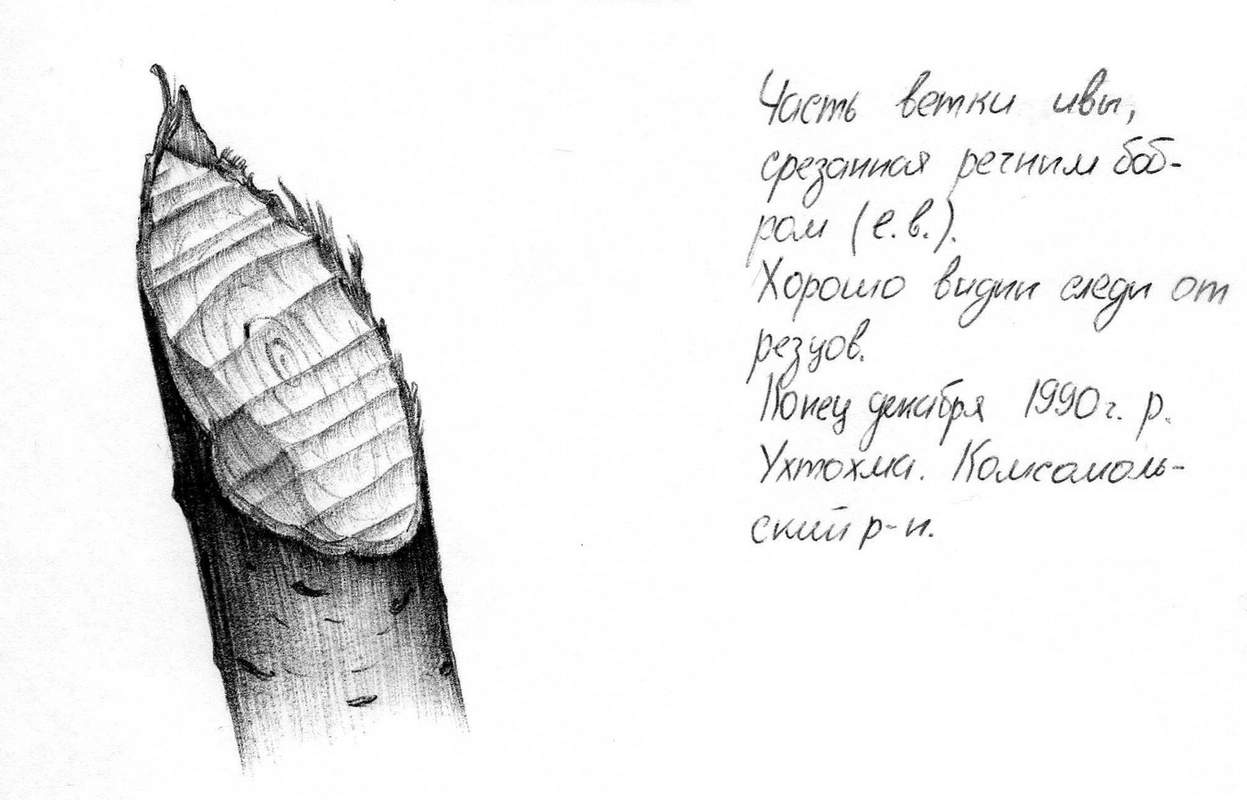 Часть ветки ивы,
срезанная речным боб-
ром (е.в.).
Хорошо видны следы от
резцов.
Конец декабря 1990 г. р.
Ухтохма. Комсомоль-
ский р-н.